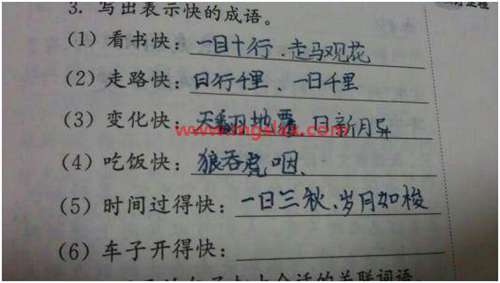 3. 写出表示快的成语。
(1) 看书快：一目十行、走马观花
(2) 走路快：日行千里、一日千里
(3) 变化快：天翻地震 日新月异
(4) 吃饭快：狼吞虎咽、
(5) 时间过得快：一日三秋、岁月如梭
(6) 车子开得快：